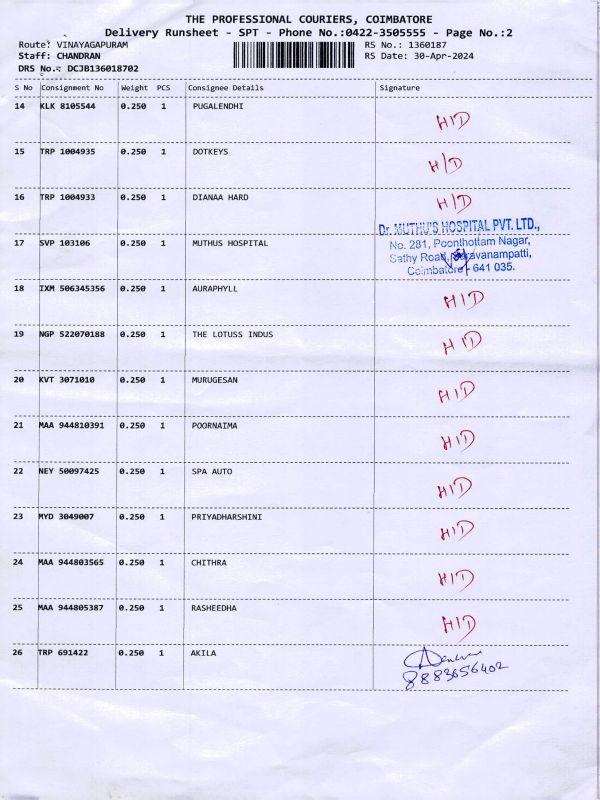 THE PROFESSIONAL COURIERS, COIMBATORE
Delivery Runsheet - SPT - Phone No.:0422-3505555 - Page No.:2
Route: VINAYAGAPURAM RS No.: 1360187
Staff: CHANDRAN RS Date: 30-Apr-2024
DRS No.: DCJB136018702
S No Consignment No Weight PCS Consignee Details Signature
14 KLK 8105544 0.250 1 PUGALENDHI H/D
15 TRP 1004935 0.250 1 DOTKEYS H/D
16 TRP 1004933 0.250 1 DIANAA HARD H/D
Dr. MUTHU'S HOSPITAL PVT. LTD.,
17 SVP 103106 0.250 1 MUTHUS HOSPITAL No. 281, Poonthottam Nagar,
Sathy Road, Saravanampatti,
Coimbatore - 641 035.
18 IXM 506345356 0.250 1 AURAPHYLL H/D
19 NGP 522070188 0.250 1 THE LOTUSS INDUS H/D
20 KVT 3071010 0.250 1 MURUGESAN H/D
21 MAA 944810391 0.250 1 POORNAIMA H/D
22 NEY 50097425 0.250 1 SPA AUTO H/D
23 MYD 3049007 0.250 1 PRIYADHARSHINI H/D
24 MAA 944803565 0.250 1 CHITHRA H/D
25 MAA 944805387 0.250 1 RASHEEDHA H/D
26 TRP 691422 0.250 1 AKILA
8883656402